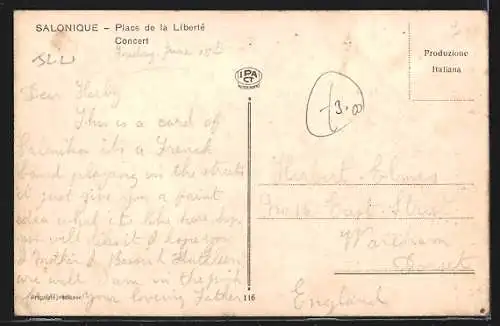 SALONIQUE – Place de la Liberté
Concert
Friday June
Produzione
Italiana
IPA
CT
3.00
Dear Herby
This is a card of
Salonika its a French
band playing in the streets
just give you a faint
idea what its like here hope
you will like it I hope you
& Mother &
are well I am in the pink
your loving Father
Herbert
No 16 East Street
Wareham
Dorset
England
116